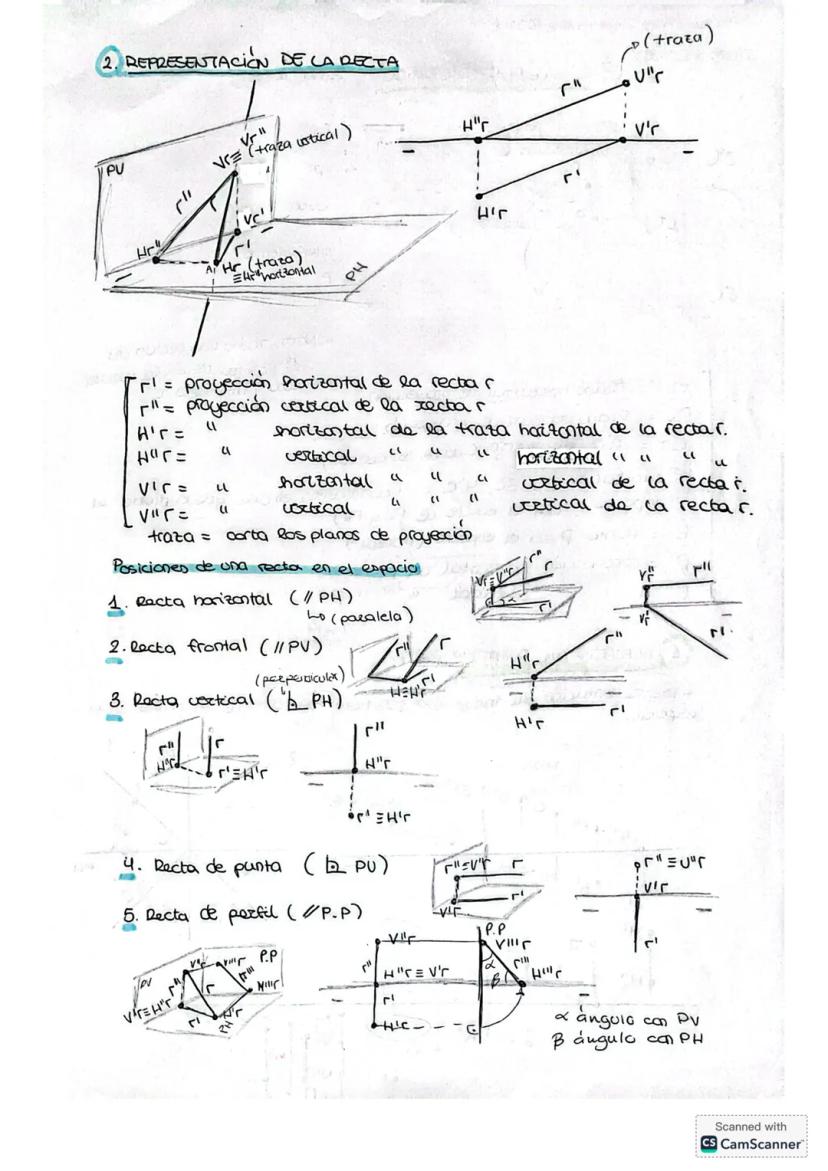 2. REPRESENTACIÓN DE LA RECTA
(traza)
V''r
r''
H''r
V'r
r'
H'r
PV
Vr≡ Vr'' (traza vertical)
r''
r
Vr'
Hr''
r'
A1
Hr (traza)
≡Hr' horizontal
PH
r' = proyección horizontal de la recta r
r'' = proyección vertical de la recta r
H'r = " horizontal de la traza horizontal de la recta r.
H''r = " vertical " " " horizontal " " " "
V'r = " horizontal " " " vertical de la recta r.
V''r = " vertical " " " vertical de la recta r.
traza = corta los planos de proyección
Posiciones de una recta en el espacio
1. Recta horizontal (// PH)
↳ (paralela)
Vr≡V''r
r''
r'
V''r
r''
V'r
r'
2. Recta frontal (// PV)
r''
r
r'
H≡H'r
H''r
r''
H'r
r'
(perpendicular)
3. Recta vertical ( PH)
r''
r
H''r
r'≡H'r
r''
H''r
r'≡H'r
4. Recta de punta ( PV)
r''≡V''r
r
r'
V'r
r''≡V''r
V'r
r'
5. Recta de perfil (// P.P)
PV
V''r
V'''r
P.P
r''
r
r'''
H'''r
V'r≡H''r
r'
H'r
PH
V''r
P.P
V'''r
r''
H''r ≡ V'r
α
r'''
β
H'''r
r'
H'r
α ángulo con PV
β ángulo con PH
Scanned with
CS CamScanner